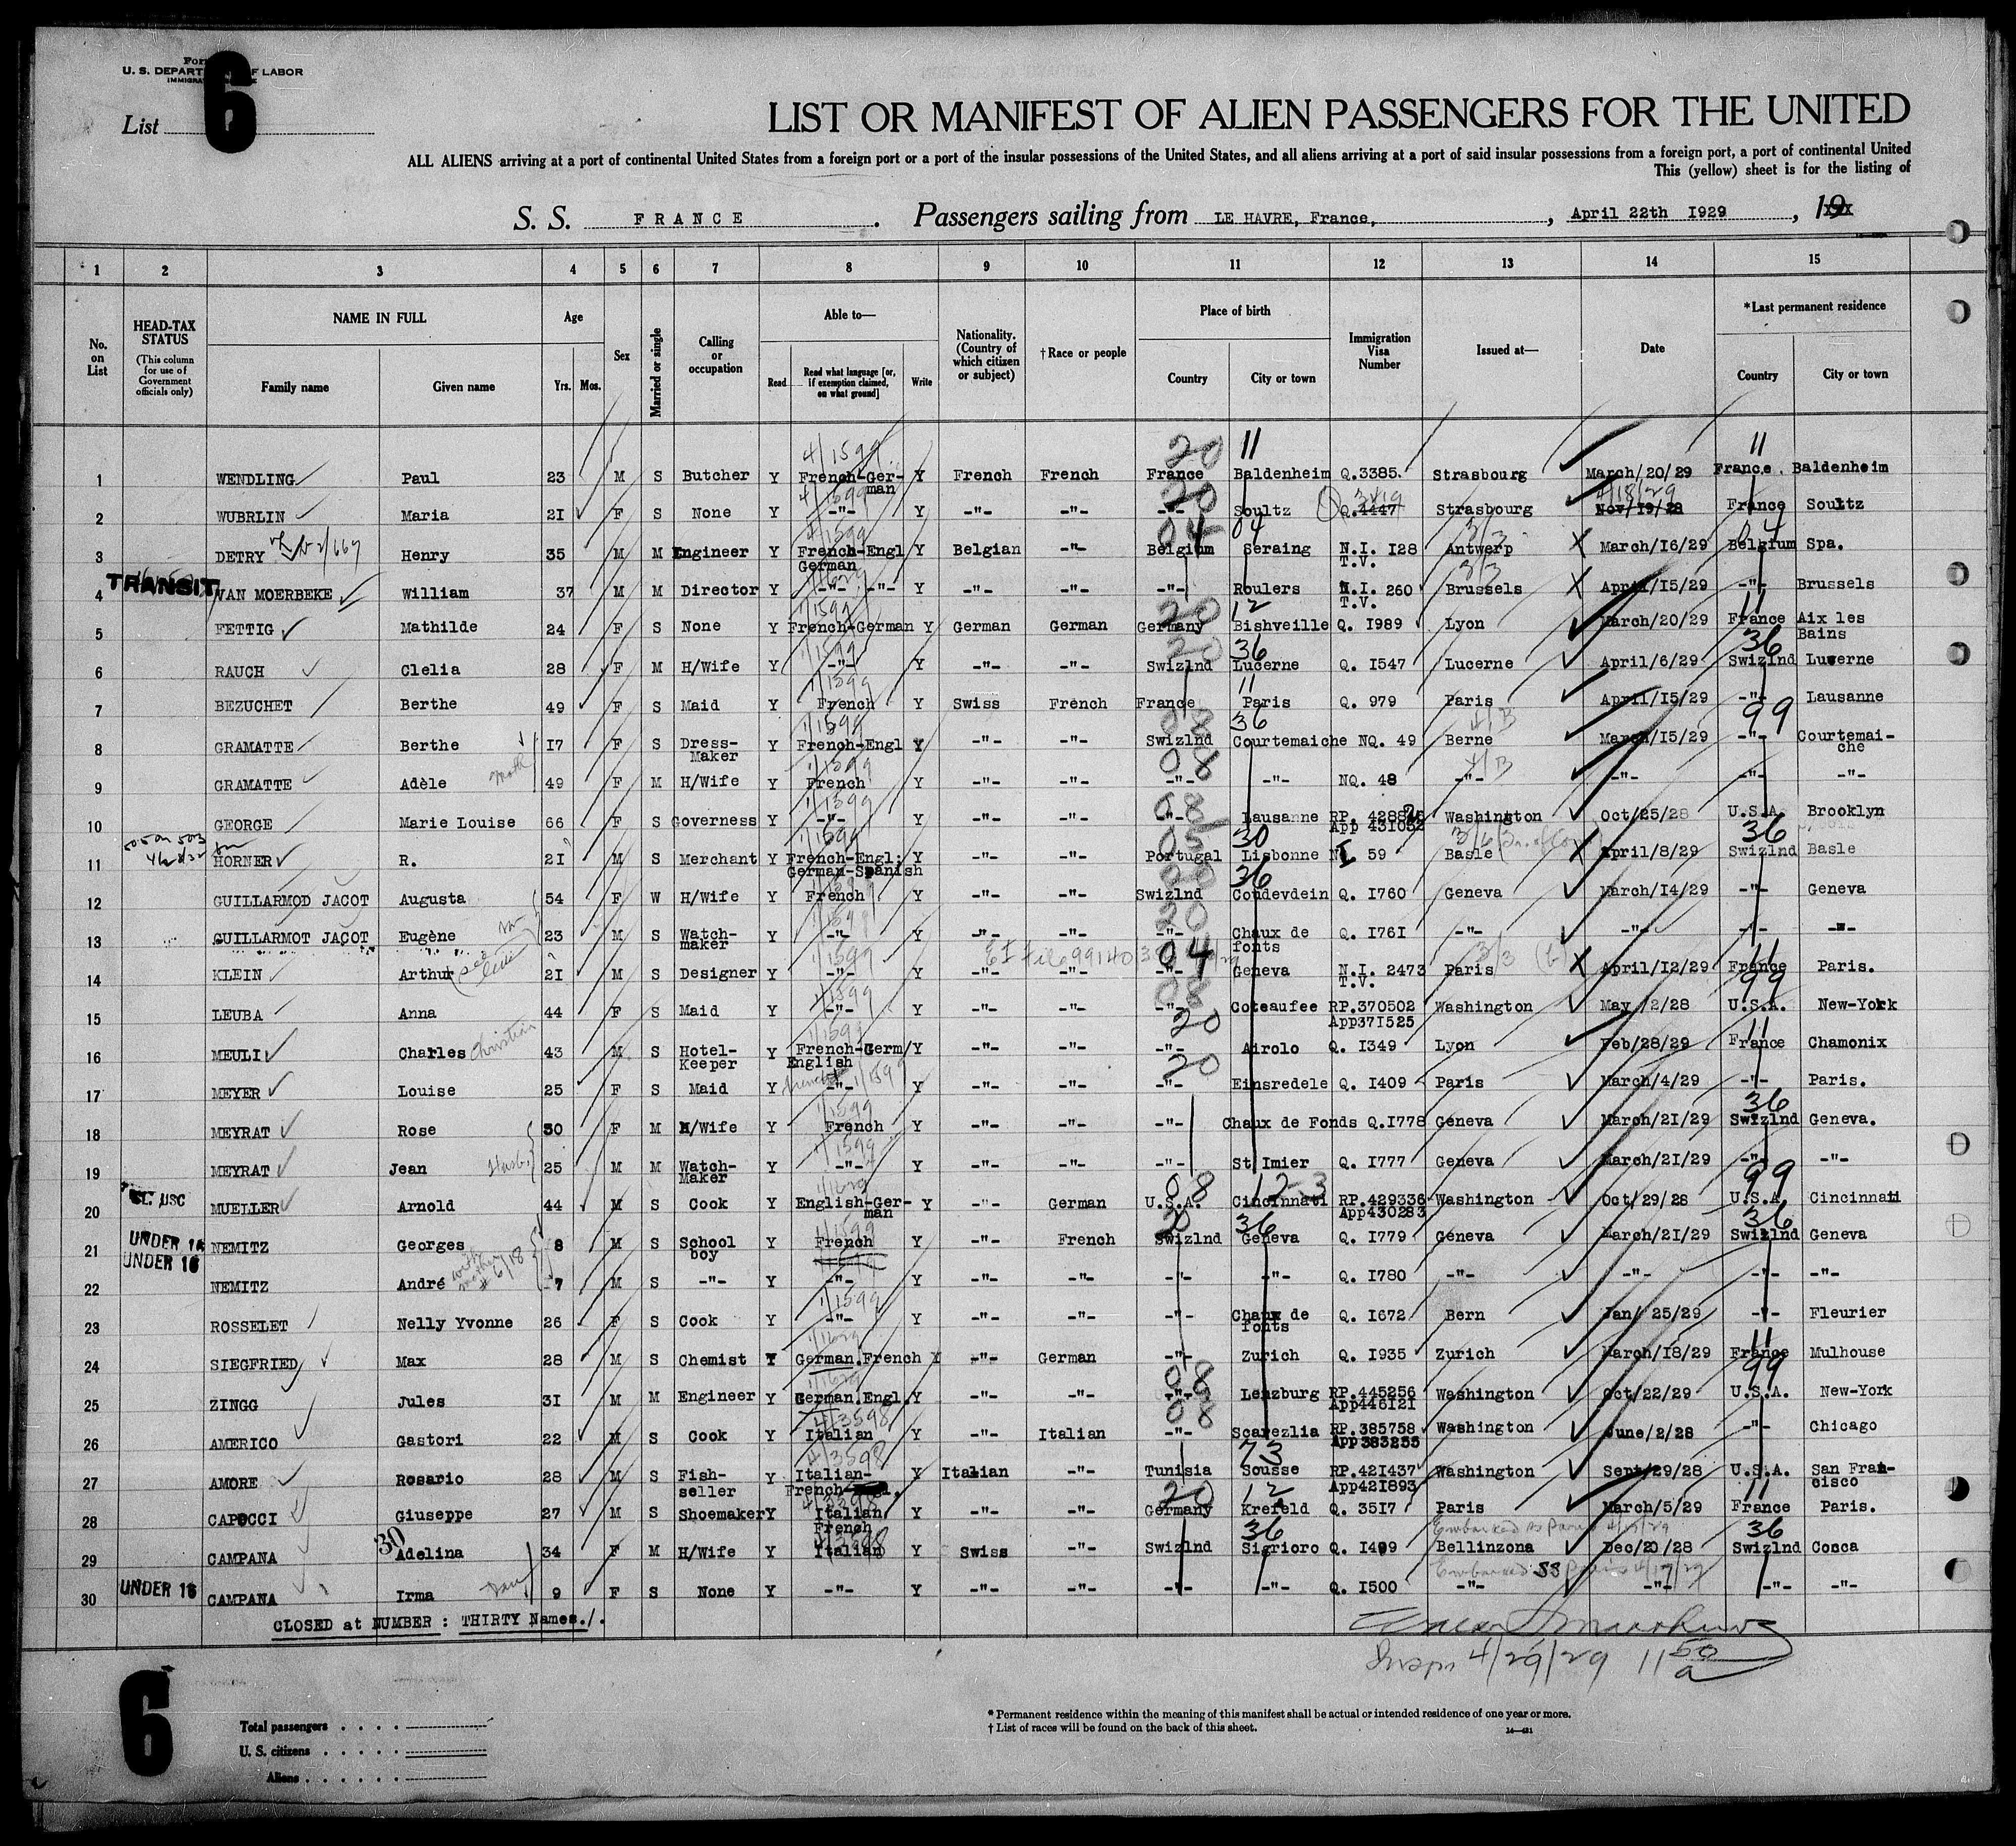 Form
U. S. DEPART F LABOR
IMMIGRA
6
List
LIST OR MANIFEST OF ALIEN PASSENGERS FOR THE UNITED
ALL ALIENS arriving at a port of continental United States from a foreign port or a port of the insular possessions of the United States, and all aliens arriving at a port of said insular possessions from a foreign port, a port of continental United
This (yellow) sheet is for the listing of
S. S. FRANCE. Passengers sailing from LE HAVRE, France, , April 22th 1929 , 19
1 2 3 4 5 6 7 8 9 10 11 12 13 14 15
No. on List
HEAD-TAX STATUS (This column for use of Government officials only)
NAME IN FULL Family name Given name
Age Yrs. Mos.
Sex
Married or single
Calling or occupation
Able to— Read Read what language [or, if exemption claimed, on what ground] Write
Nationality. (Country of which citizen or subject)
† Race or people
Place of birth Country City or town
Immigration Visa Number
Issued at—
Date
*Last permanent residence Country City or town
4/1599 20 11 11
1 WENDLING Paul 23 M S Butcher Y French-German Y French French France Baldenheim Q.3385. Strasbourg March/20/29 France. Baldenheim
4/1599 20 4/18/29
2 WUBRLIN Maria 21 F S None Y -"- Y -"- -"- -"- Soultz Q.4447 Strasbourg Nov/19/28 France Soultz
4/1599 04 04 3/3 04
3 DETRY Henry 35 M M Engineer Y French-Engl German Y Belgian -"- Belgium Seraing N.I. 128 T.V. Antwerp March/16/29 Belgium Spa.
1/1629 3/3
4 TRANSIT VAN MOERBEKE William 37 M M Director Y -"- -"- Y -"- -"- -"- Roulers N.I. 260 T.V. Brussels April/15/29 -"- Brussels
1/1599 20 12 11
5 FETTIG Mathilde 24 F S None Y French-German Y German German Germany Bishveille Q. 1989 Lyon March/20/29 France Aix les Bains
1/1599 20 36 36
6 RAUCH Clelia 28 F M H/Wife Y -"- Y -"- -"- Swizlnd Lucerne Q. 1547 Lucerne April/6/29 Swizlnd Luverne
1/1599 11
7 BEZUCHET Berthe 49 F S Maid Y French Y Swiss French France Paris Q. 979 Paris April/15/29 -"- Lausanne
1/1599 08 36 4/B 99
8 GRAMATTE Berthe 17 F S Dress-Maker Y French-Engl Y -"- -"- Swizlnd Courtemaiche NQ. 49 Berne March/15/29 -"- Courtemaiche
1/1599 08 4/B
9 GRAMATTE Adèle moth 49 F M H/Wife Y French Y -"- -"- -"- -"- NQ. 48 -"- -"- -"- -"-
1/1599 08
10 GEORGE Marie Louise 66 F S Governess Y -"- Y -"- -"- -"- Lausanne RP. 42882 App 431032 Washington Oct/25/28 U.S.A. Brooklyn
1/1599 05 30 36
11 HORNER R. 21 M S Merchant Y French-Engl: German-Spanish Y -"- -"- Portugal Lisbonne NI 59 Basle April/8/29 Swizlnd Basle
20 36
12 GUILLARMOD JACOT Augusta 54 F W H/Wife Y French Y -"- -"- Swizlnd Coudevdein Q. 1760 Geneva March/14/29 -"- Geneva
1/1599 20
13 GUILLARMOT JACOT Eugène 23 M S Watch-maker Y -"- Y -"- -"- -"- Chaux de fonts Q. 1761 -"- -"- -"- -"-
1/1599 04 3/3 11
14 KLEIN Arthur 21 M S Designer Y -"- Y -"- -"- -"- Geneva N.I. 2473 T.V. Paris April/12/29 France Paris.
1/1599 08 99
15 LEUBA Anna 44 F S Maid Y -"- Y -"- -"- -"- Coteaufee RP.370502 App371525 Washington May /2/28 U.S.A. New-York
1/1599 20 11
16 MEULI Charles Christian 43 M S Hotel-Keeper Y French-Germ/ English Y -"- -"- -"- Airolo Q. 1349 Lyon Feb/28/29 France Chamonix
1/1599 20
17 MEYER Louise 25 F S Maid Y -"- Y -"- -"- -"- Einsredele Q. 1409 Paris March/4/29 -"- Paris.
1/1599 36
18 MEYRAT Rose 30 F M H/Wife Y French Y -"- -"- -"- Chaux de Fonds Q.1778 Geneva March/21/29 Swizlnd Geneva.
1/1599
19 MEYRAT Jean Husb. 25 M M Watch-Maker Y -"- Y -"- -"- -"- St Imier Q. 1777 Geneva March/21/29 -"- -"-
1/1629 08 12-3 99
20 USC MUELLER Arnold 44 M S Cook Y English-German Y -"- German U.S.A. Cincinnati RP.429336 App430283 Washington Oct/29/28 U.S.A. Cincinnati
1/1599 20 36 36
21 UNDER 16 NEMITZ Georges 8 M S School boy Y French Y -"- French Swizlnd Geneva Q. 1779 Geneva March/21/29 Swizlnd Geneva
22 UNDER 16 NEMITZ André with mother # 6/18 7 M S -"- Y -"- Y -"- -"- -"- -"- Q. 1780 -"- -"- -"- -"-
1/1599
23 ROSSELET Nelly Yvonne 26 F S Cook Y -"- Y -"- -"- -"- Chaux de fonts Q. 1672 Bern Jan/ 25/29 -"- Fleurier
1/1629 11
24 SIEGFRIED Max 28 M S Chemist Y German.French Y -"- German -"- Zurich Q. 1935 Zurich March/18/29 France Mulhouse
1/1629 08 99
25 ZINGG Jules 31 M M Engineer Y German.Engl. Y -"- -"- -"- Lenzburg RP.445256 App446121 Washington Oct/22/29 U.S.A. New-York
4/3598 08
26 AMERICO Gastori 22 M S Cook Y Italian Y -"- Italian -"- Scarezlia RP.385758 App383255 Washington June/2/28 -"- Chicago
4/3598 73
27 AMORE Rosario 28 M S Fish-seller Y Italian-French- Y Italian -"- Tunisia Sousse RP.421437 App421893 Washington Sept/29/28 U.S.A. San Francisco
20 12 11
28 CAPOCCI Giuseppe 27 M S Shoemaker Y Italian French Y -"- -"- Germany Krefeld Q. 3517 Paris March/5/29 France Paris.
30 4/3598 36 36
29 CAMPANA Adelina 34 F M H/Wife Y Italian Y Swiss -"- Swizlnd Sigrioro Q. 1499 Bellinzona Dec/20/28 Swizlnd Cosca
30 UNDER 16 CAMPANA Irma 9 F S None Y -"- Y -"- -"- -"- -"- Q. 1500 -"- -"- -"- -"-
CLOSED at NUMBER : THIRTY Names./.
4/29/29 11 50 a
6
Total passengers
U. S. citizens
Aliens
* Permanent residence within the meaning of this manifest shall be actual or intended residence of one year or more.
† List of races will be found on the back of this sheet.